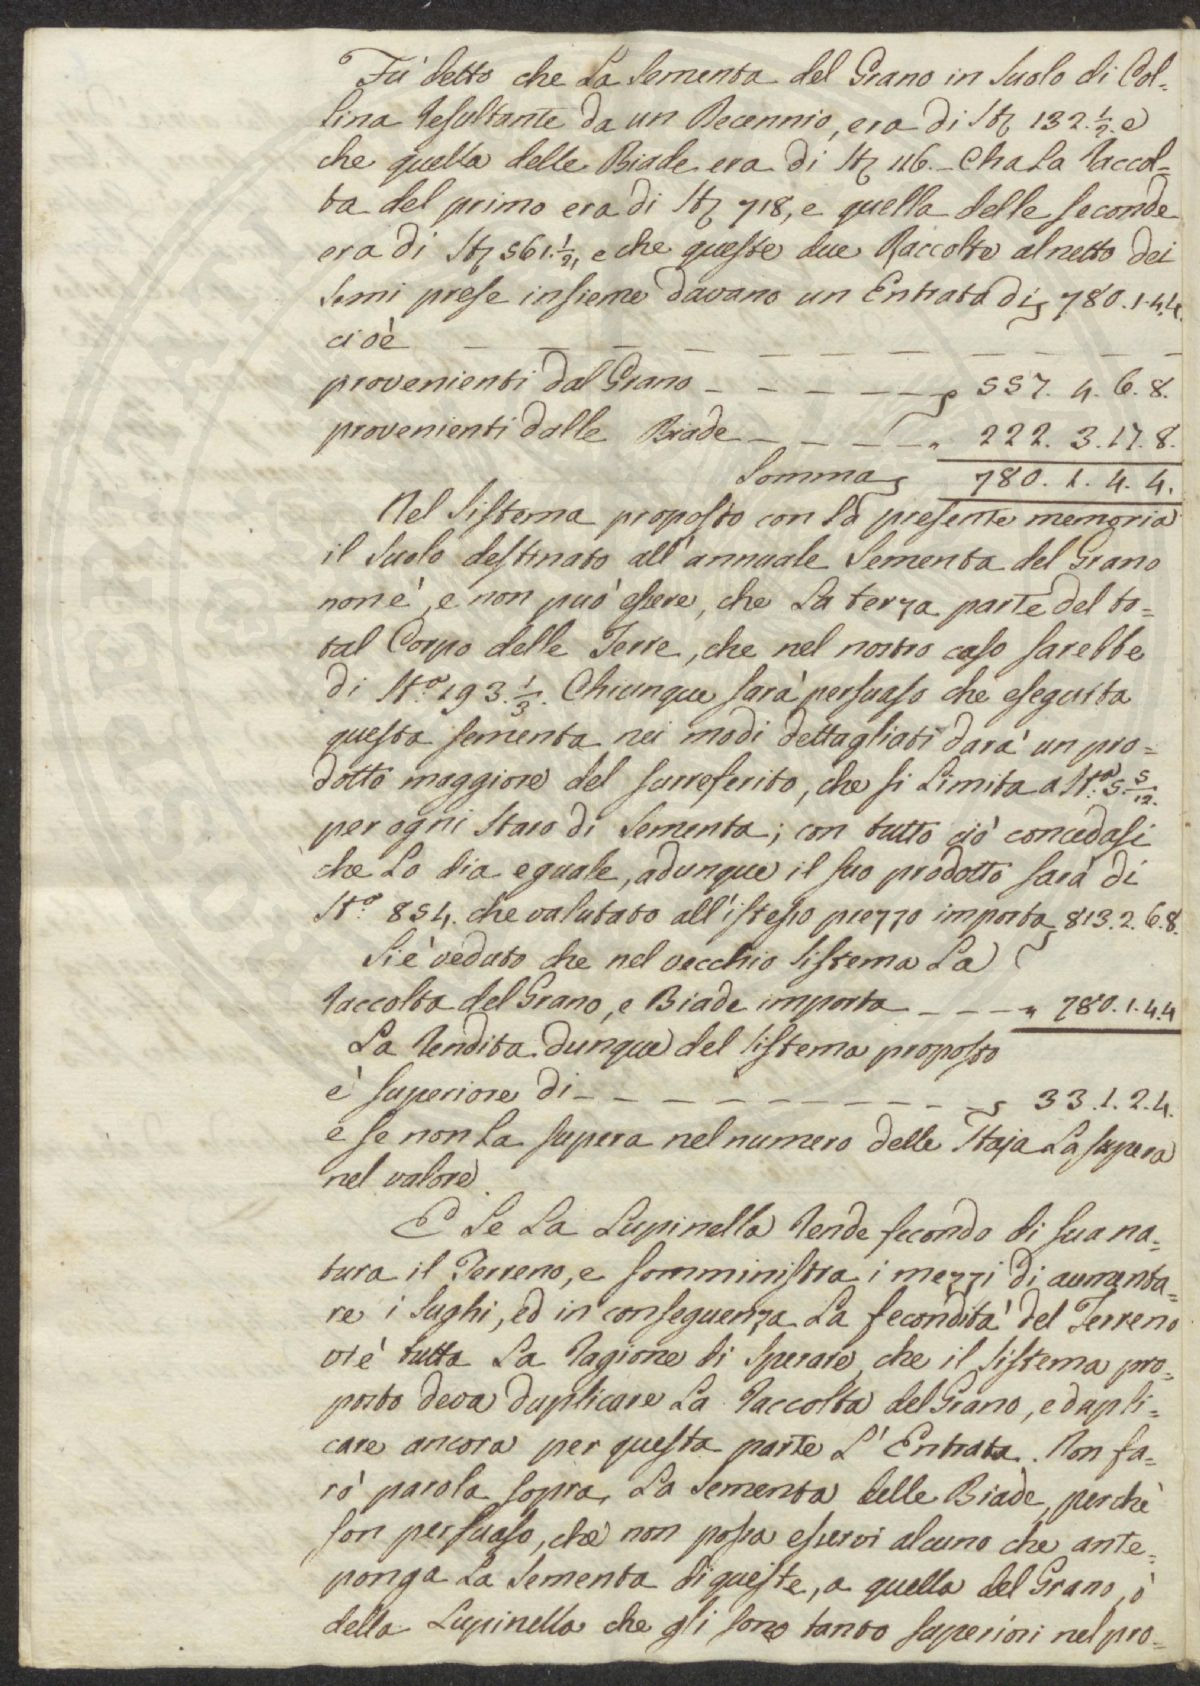 Fù detto che La Sementa del Grano in Suolo di Col=
lina Resultante da un Decennio, era di Stª 132. 1/2. e
che quella delle Biade era di Stª 116. Che La Raccol=
ta del primo era di Stª 718, e quella delle seconde
era di Stª 561. 1/2, e che queste due Raccolte al netto dei
Semi prese insieme davano un Entrata di 780. 1. 4. 4.
cioè — — — — — — — — — — — —
provenienti dal Grano — — — — — 557. 4. 6. 8.
provenienti dalle Biade — — — — " 222. 3. 17. 8.
Somma 780. 1. 4. 4.
Nel Sistema proposto con la presente memoria
il Suolo destinato all'annuale Sementa del Grano
non è, e non può essere, che La terza parte del to=
tal Corpo delle Terre, che nel nostro caso sarebbe
di Stª 193. 1/3. Chiunque sarà persuaso che eseguita
questa sementa nei modi dettagliati darà un pro=
dotto maggiore del surreferito, che si Limita a Stª 5. 5/12.
per ogni Staio di Sementa; con tutto ciò concedasi
che Lo dia eguale, adunque il suo prodotto sarà di
Stª 854. che valutato all'istesso prezzo importa 813. 2. 6. 8.
Si è veduto che nel vecchio Sistema La
Raccolta del Grano, e Biade importa — — — " 780. 1. 4. 4
La Rendita dunque del Sistema proposto
è superiore di — — — — — — — — — 33. 1. 2. 4.
e se non La supera nel numero delle Staja La supera
nel valore
E Se La Lupinella Rende fecondo di sua na=
tura il Terreno, e somministra i mezzi di aumenta=
re i Sughi, ed in conseguenza La fecondità del Terreno
vi è tutta La Ragione di Sperare, che il Sistema pro=
posto deva duplicare La Raccolta del Grano, e dupli=
care ancora per questa parte L'Entrata. Non fa=
rò parola sopra La Sementa delle Biade, perchè
son persuaso, che non possa esservi alcuno che ante=
ponga La Sementa di queste, a quella del Grano, ò
della Lupinella che gli sono tanto superiori nel pro=